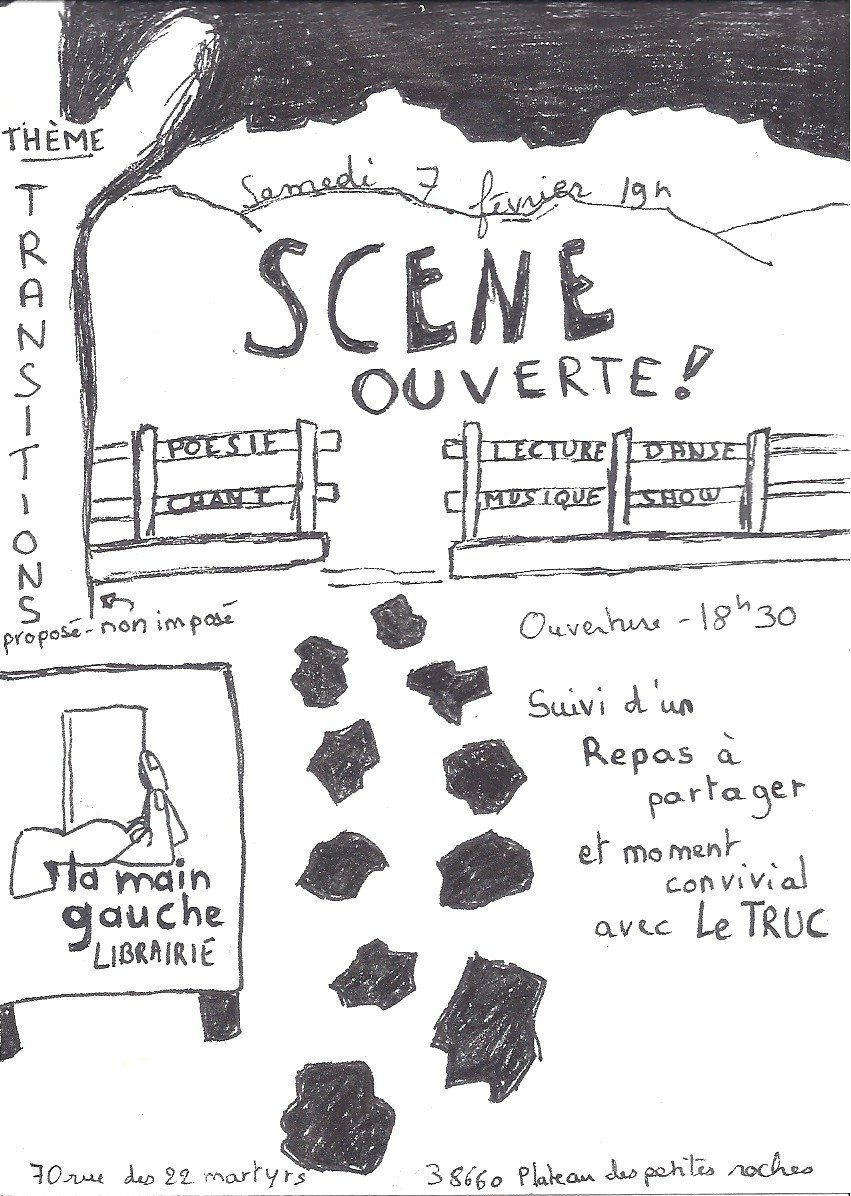 THÈME
TRANSITIONS
proposé - non imposé
Samedi 7 février 19h
SCENE
OUVERTE !
POESIE
CHANT
LECTURE DANSE
MUSIQUE SHOW
Ouverture - 18h30
Suivi d'un
Repas à
partager
et moment
convivial
avec Le TRUC
la main
gauche
LIBRAIRIE
70 rue des 22 martyrs
38660 Plateau des petites roches